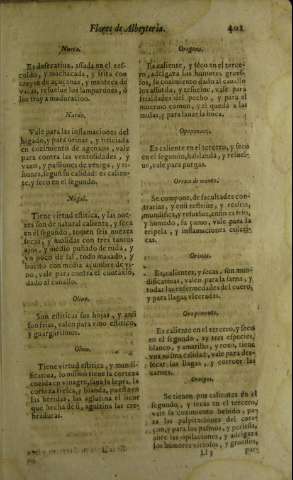 Flores de Albeyteria. 401
Nueza.
Es desecativa, assada en el res-
coldo, y machacada, y frita con
azeyte de açuçenas, y manteca de
vacas, resuelve los lamparones, ò
los trae a maduracion.
Nardo.
Vale para las inflamaciones del
higado, y para orinar, y
en cozimiento de agenxos, vale
para contra las ventosidades, y
vasos, y passiones de vexiga, y
ñones, segun su calidad: es calien-
te, y seco en el segundo.
Nogal.
Tiene virtud estitica, y las nue-
zes son de natural caliente, y seca
en el segundo, toquen seis nuezes
secas, y molidas con tres tantos
ajos, y medio puñado de ruda, y
vn poco de sal, todo maxado, y
batido con media açumbre de vi-
no, vale para contra el contagio,
dado al cavallo.
Olivo.
Son estiticas sus hojas, y assi
son frias, valen para vino estitico,
y gargarismos.
Olmo.
Tiene virtud estitica, y mundi-
ficativa, lo mismo tiene la corteza
cozida con vinagre, sana la lepra, la
corteza fresca, y blanda, puesta en
las heridas, las aglutina el licor
que hecha de sì, aglutina las que-
braduras.
Oregano.
Es caliente, y seco en el terce-
ro, adelgaza los humores grues-
sos, su cozimiento dado al cavallo
le assutila, y resuelve, vale para
frialdades del pecho, y para el
muermo comun, y es ayuda a las
nudas, y para lavar la boca.
Opoponaco.
Es caliente en el tercero, y seco
en el segundo, ablanda, y resuel-
ve, vale para purgas.
de monte.
Se compone de facultades con-
trarias, y assi resfria, y
mundifica, y resuelve,
y humedo, su çumo, vale para la
erisipela, y inflamaciones
cas.
Es calientes, y secas, son mun-
dificativas, valen para la sarna, y
todas las enfermedades del cuero,
y para llagas viceradas.
Oropimente.
Es caliente en el tercero, y seco
en el segundo, ay tres especies,
blanco, y amarillo, y roxo, tiene
vna misma calidad, vale para des-
secar las llagas, y corroer las
carnes.
Se tienen por calientes en el
segundo, y secas en el tercero,
vale su cozimiento bebido, pa-
ra las palpitaciones del cora-
çon, y para los pasmos, y perlesia,
abre las opilaciones, y adelgaza
los humores viciosos, y gruessos,
para